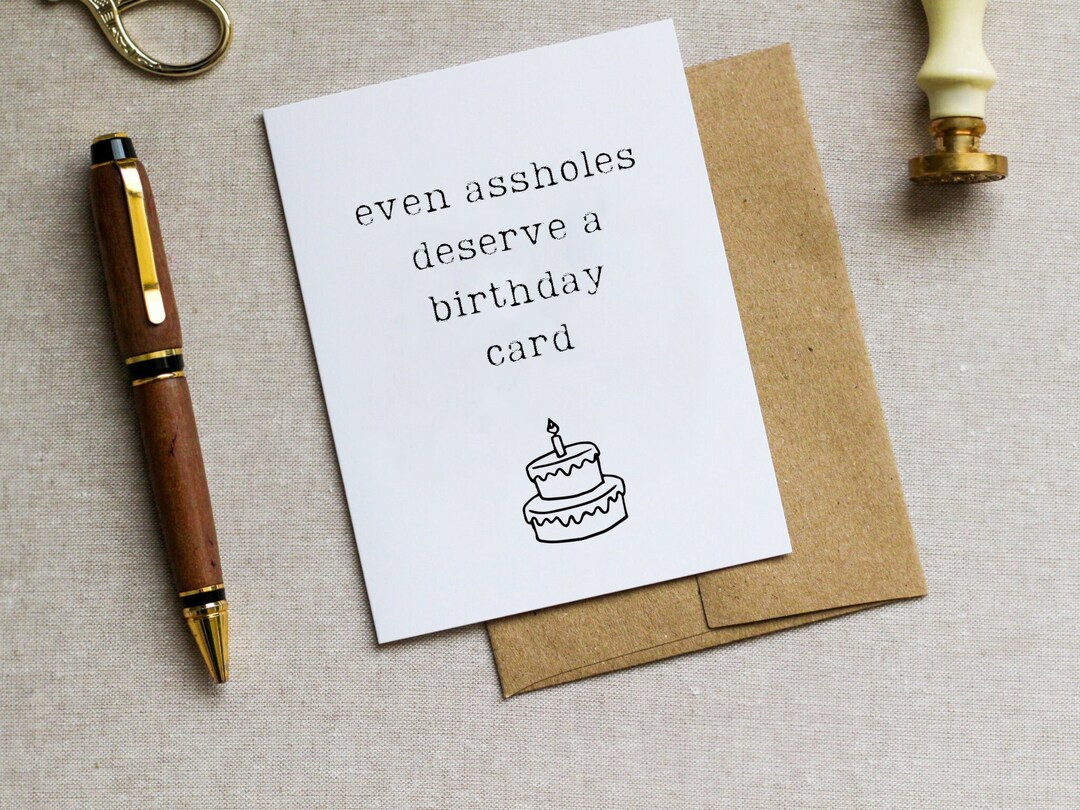 even assholes
deserve a
birthday
card